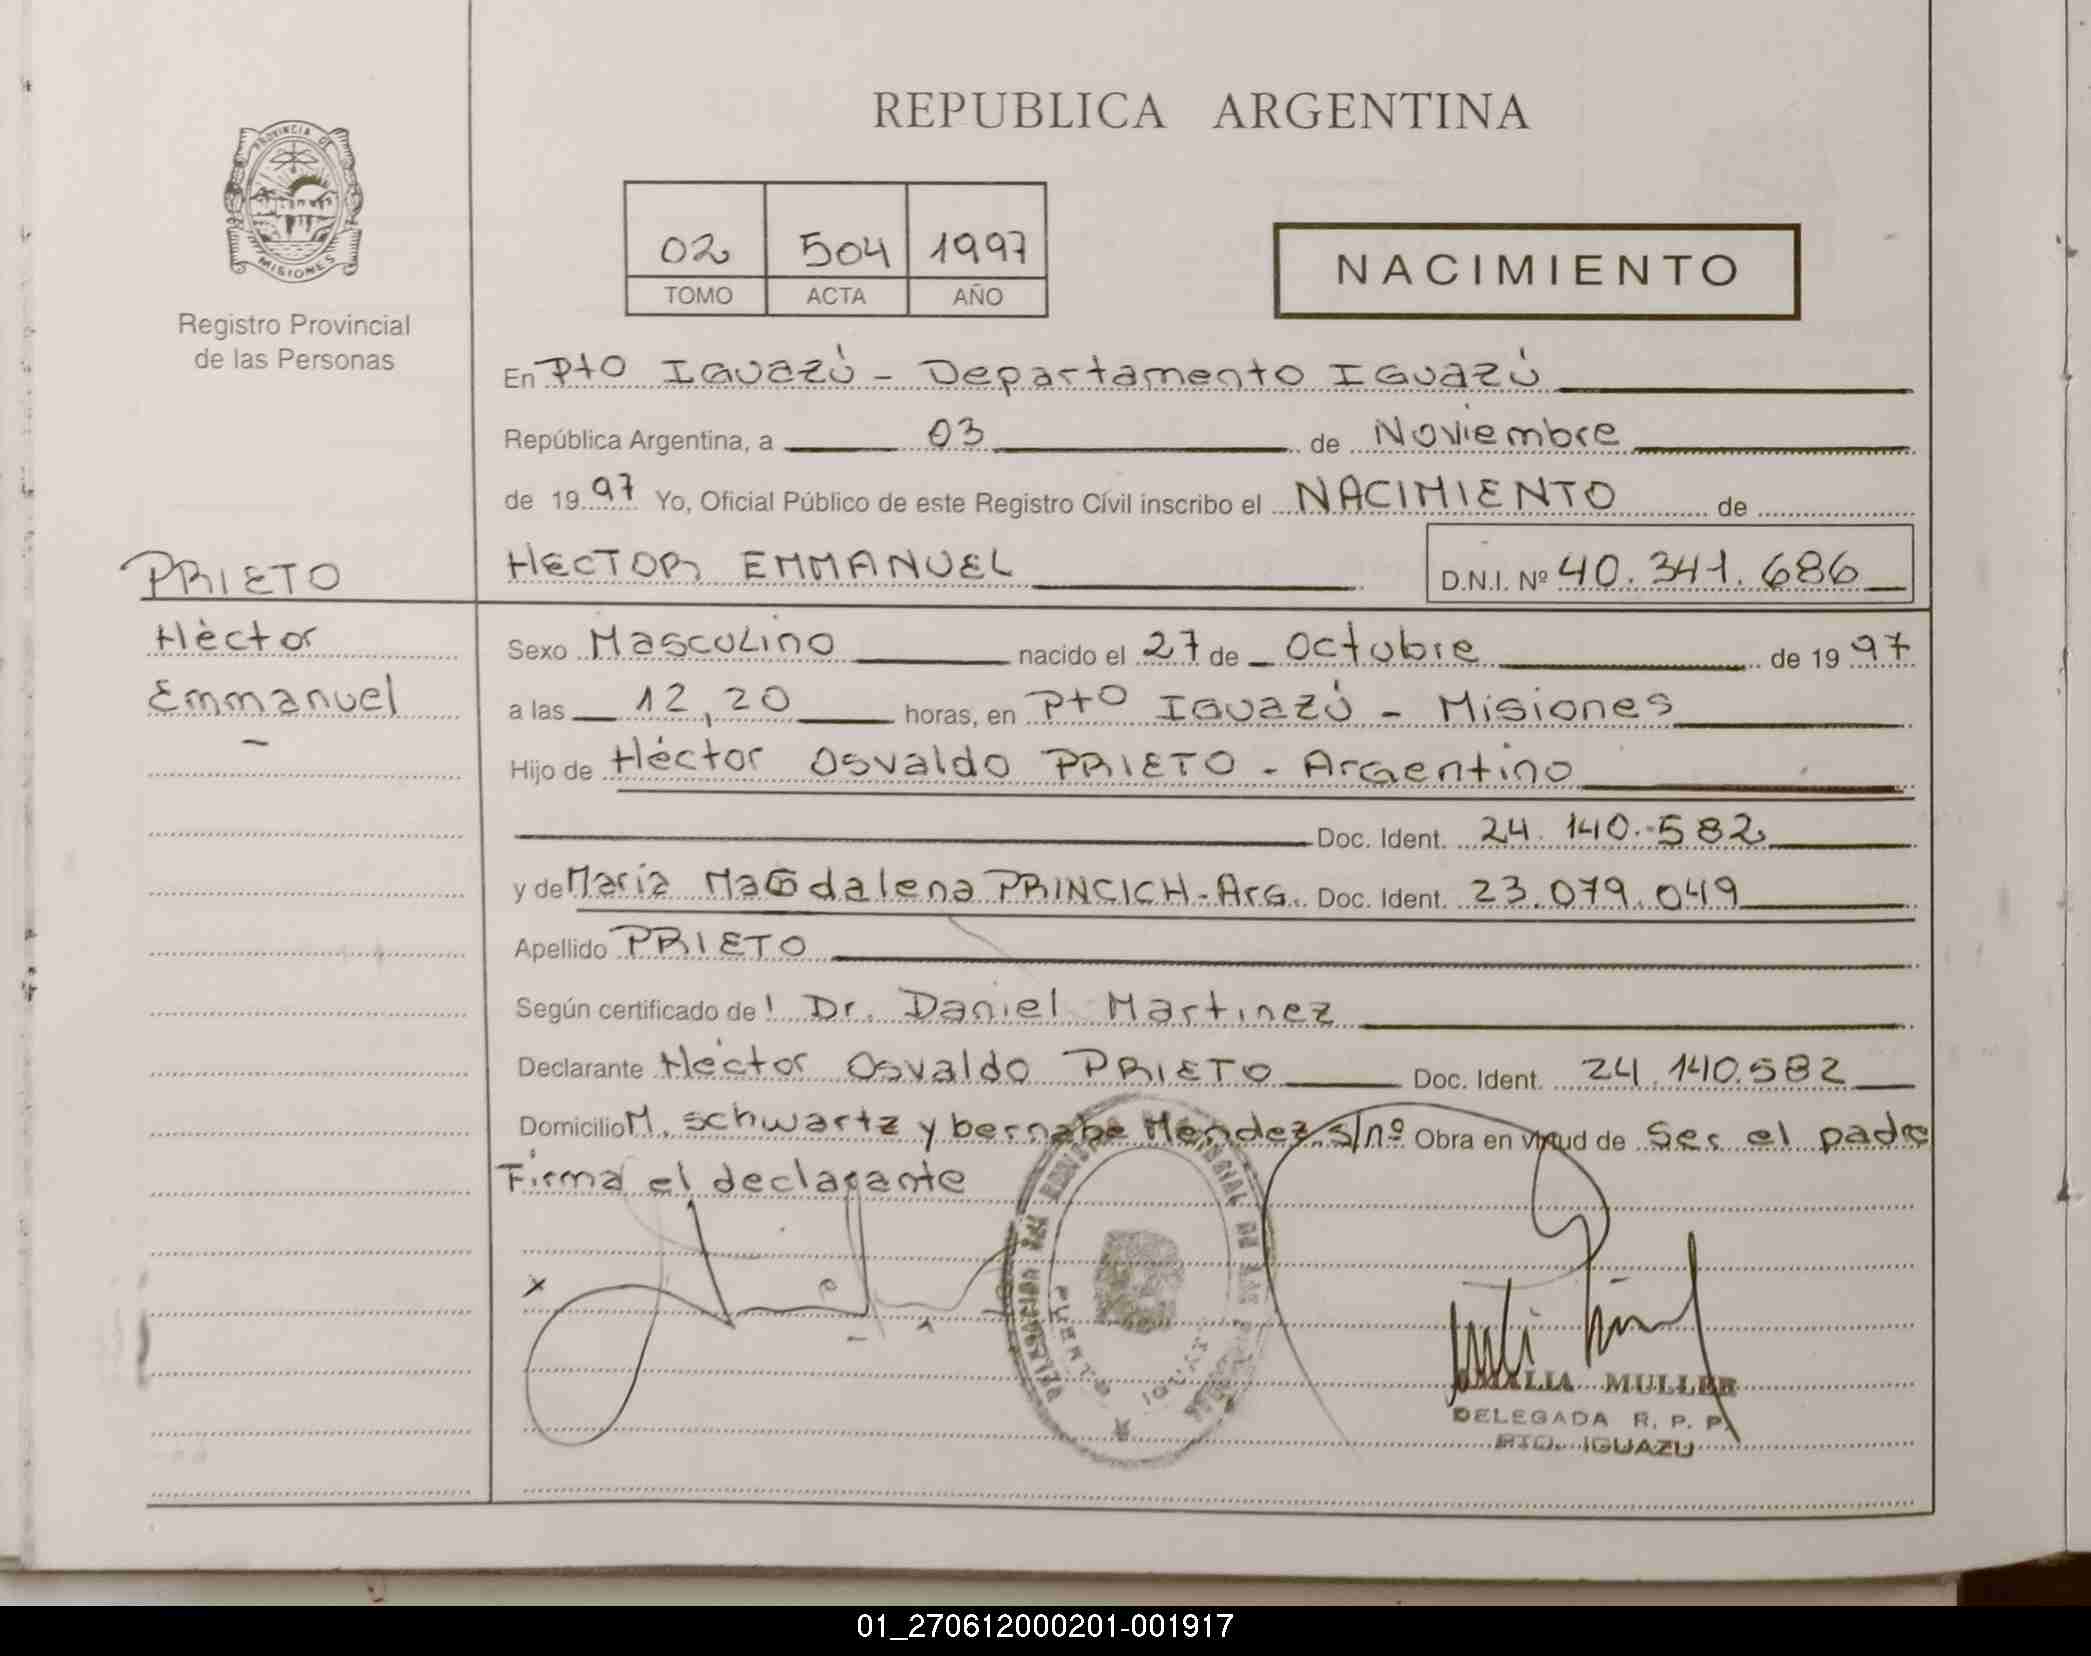 REPUBLICA ARGENTINA
PROVINCIA DE
MISIONES
Registro Provincial
de las Personas
02 504 1997
TOMO ACTA AÑO
NACIMIENTO
En Pto Iguazú - Departamento Iguazú
República Argentina, a 03 de Noviembre
de 1997 Yo, Oficial Público de este Registro Civil inscribo el NACIMIENTO de
PRIETO
HECTOR EMMANUEL D.N.I. Nº 40.341.686
Héctor
Emmanuel
Sexo Masculino nacido el 27 de Octubre de 1997
a las 12,20 horas, en Pto Iguazú - Misiones
Hijo de Héctor Osvaldo PRIETO - Argentino
Doc. Ident. 24.140.582
y de Maria Magdalena PRINCICH - Arg. Doc. Ident. 23.079.049
Apellido PRIETO
Según certificado de Dr. Daniel Martinez
Declarante Héctor Osvaldo PRIETO Doc. Ident. 24.140.582
Domicilio M. schwartz y bernabe Méndez s/nº Obra en virtud de ser el padre
Firma el declarante
x
DELEGACION DEL REGISTRO PROVINCIAL DE LAS
PUERTO IGUAZU
MULLER
DELEGADA R. P. P.
PTO. IGUAZU
01_270612000201-001917